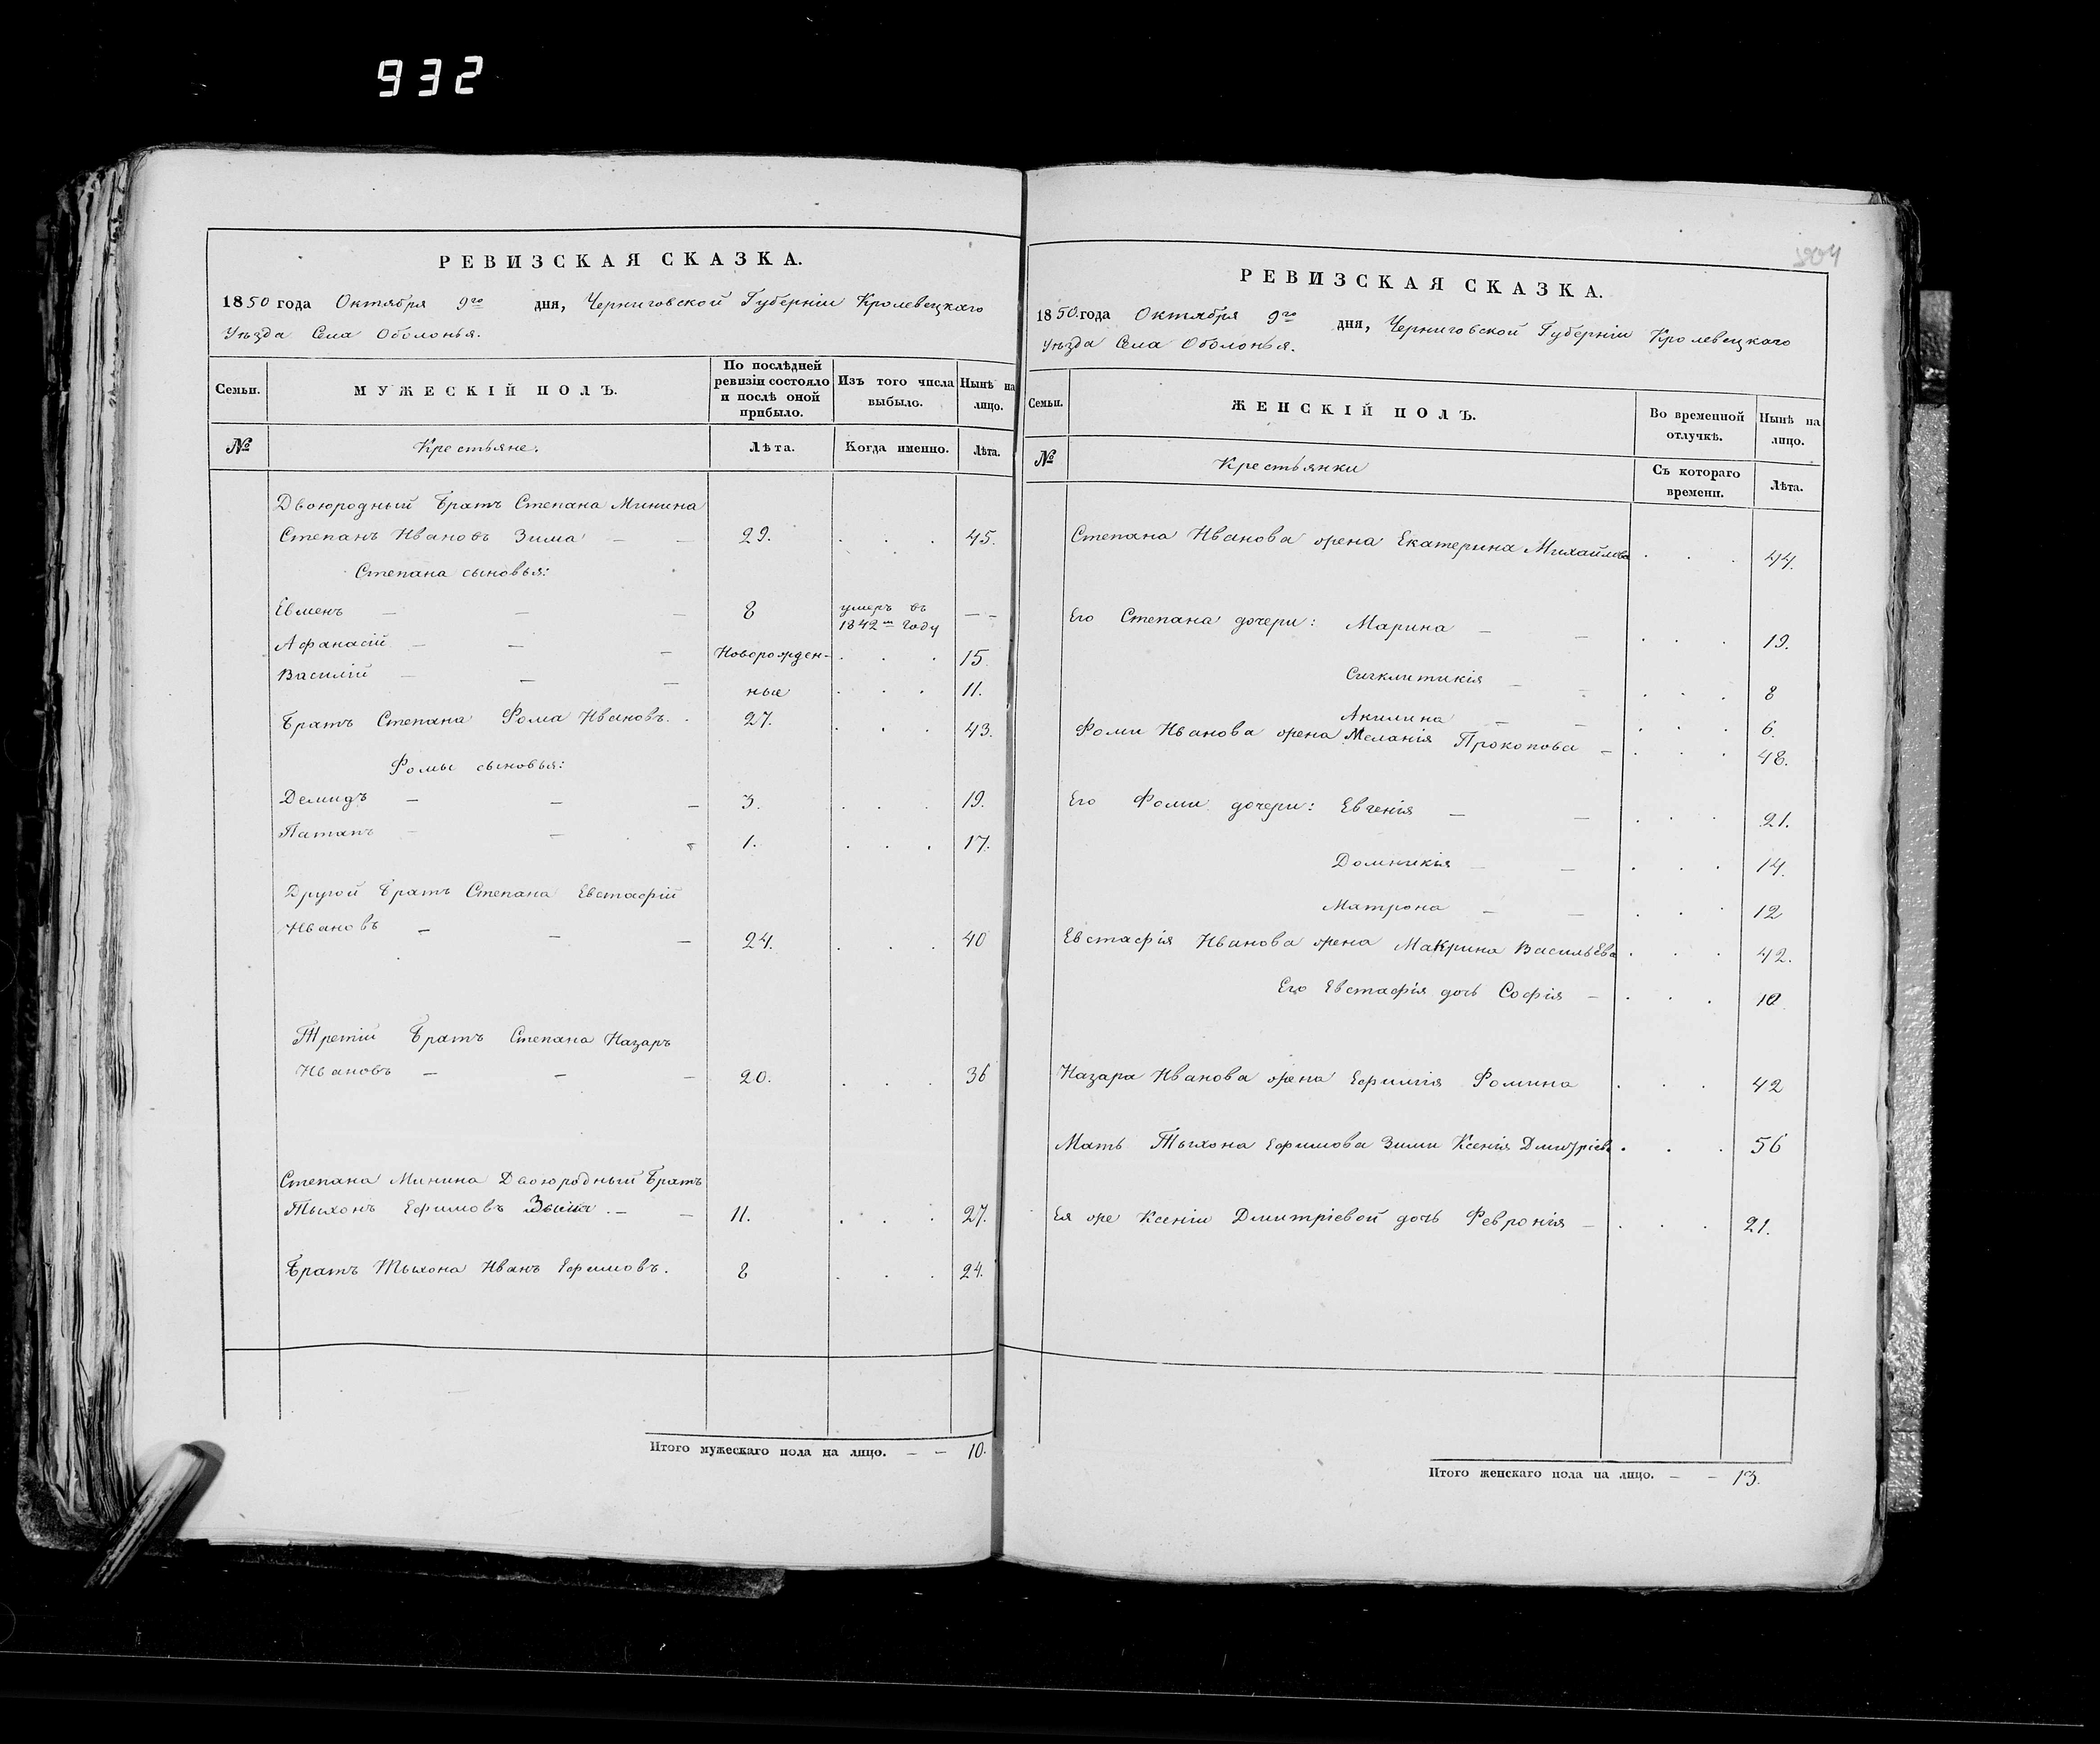 932
РЕВИЗСКАЯ СКАЗКА.
1850 года Октября 9го дня, Черниговской Губерніи Кролевецкаго
Уѣзда Села Оболонья.
Семьи. МУЖЕСКІЙ ПОЛЪ. По послѣдней ревизіи состояло и послѣ оной прибыло. Изъ того числа выбыло. Нынѣ на лицо.
№ Крестьяне. Лѣта. Когда именно. Лѣта.
Двоюродный Братъ Степана Минина
Степанъ Ивановъ Зима — — 29. . . . 45.
Степана сыновья:
Евменъ — — — 8 умеръ въ 1842м году — —
Афанасій — — — Новорожден- . . . 15
Василій — — — ные . . . 11.
Братъ Степана Фома Ивановъ. . 27. . . . 43.
Фомы сыновья:
Демидъ — — — 3. . . . 19.
Патапъ — — 1. . . . 17.
Другой Братъ Степана Евстафій
Ивановъ — — — 24. . . . 40
Третій Братъ Степана Назаръ
Ивановъ — — — 20. . . . 36
Степана Минина Двоюродный Братъ
Тыхонъ Ефимовъ Зыма . — — 11. . . . 27.
Братъ Тыхона Иванъ Ефимовъ. 8 . . . 24.
Итого мужескаго пола на лицо. — — 10.
РЕВИЗСКАЯ СКАЗКА.
1850 года Октября 9го дня, Черниговской Губерніи Кролевецкаго
Уѣзда Села Оболонья.
Семьи. ЖЕНСКІЙ ПОЛЪ. Во временной отлучкѣ. Нынѣ на лицо.
№ Крестьянки Съ котораго времени. Лѣта.
Степана Иванова жена Екатерина Михайлова . . . 44.
Его Степана дочери: Марина — — . . . 19.
Сигклитикія — — . . . 8
Акилина — — . . . 6.
Фоми Иванова жена Меланія Прокопова — . . . 48.
Его Фоми дочери: Евгенія — — . . . 21.
Домникія — — . . . 14.
Матрона — — . . . 12
Евстафія Иванова жена Макрина Васильева . . . 42.
Его Евстафія дочь Софія — . . . 10
Назара Иванова жена Ефимія Фомина . . . 42
Мать Тыхона Ефимова Зими Ксенія Дмитріева . . . 56
Ея же Ксеніи Дмитріевой дочь Февронія — . . . 21.
Итого женскаго пола на лицо. — — 13.